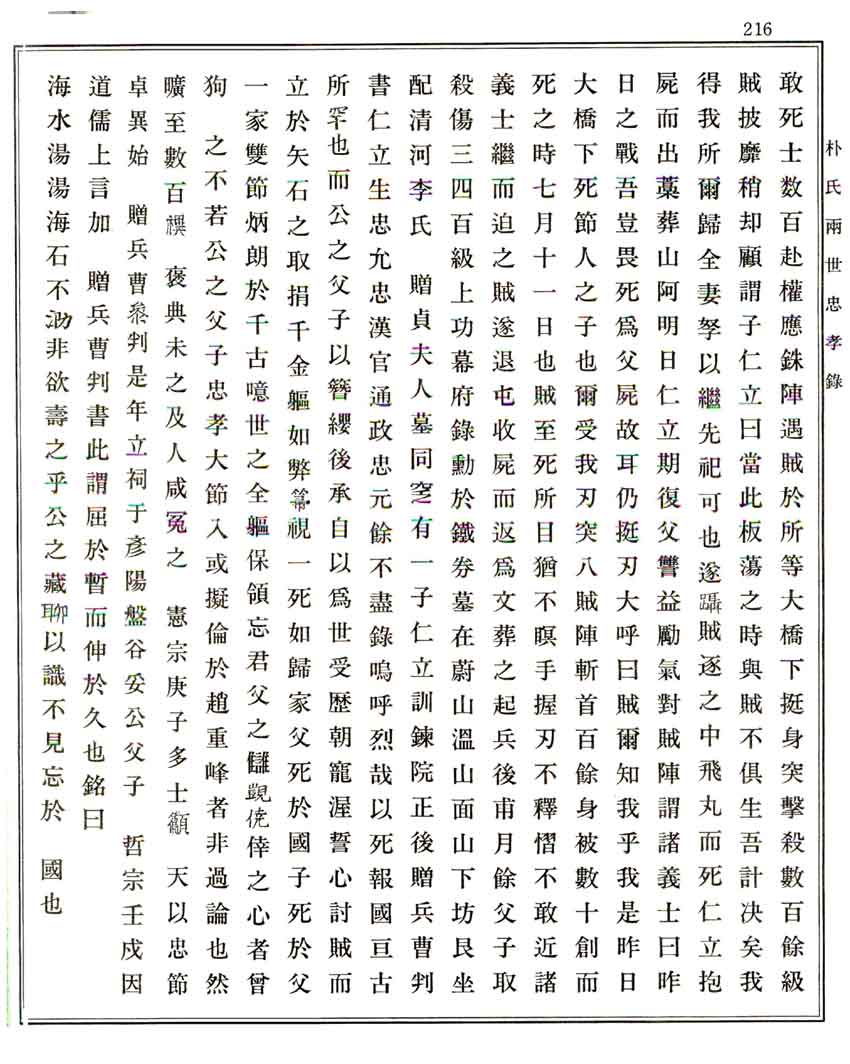 216
朴氏兩世忠孝錄
敢死士數百赴權應銖陣遇賊於所等大橋下挺身突擊殺數百餘級
賊披靡稍却顧謂子仁立曰當此板蕩之時與賊不俱生吾計決矣我
得我所爾歸全妻孥以繼先祀可也遂躡賊逐之中飛丸而死仁立抱
屍而出藁葬山阿明日仁立期復父讐益勵氣對賊陣謂諸義士曰昨
日之戰吾豈畏死爲父屍故耳仍挺刃大呼曰賊爾知我乎我是昨日
大橋下死節人之子也爾受我刃突入賊陣斬首百餘身被數十創而
死之時七月十一日也賊至死所目猶不瞑手握刃不釋慴不敢近諸
義士繼而迫之賊遂退屯收屍而返爲文葬之起兵後甫月餘父子取
殺傷三四百級上功幕府錄勳於鐵券墓在蔚山溫山面山下坊艮坐
配清河李氏 贈貞夫人墓同窆有一子仁立訓鍊院正後贈兵曹判
書仁立生忠允忠漢官通政忠元餘不盡錄嗚呼烈哉以死報國亘古
所罕也而公之父子以簪纓後承自以爲世受歷朝寵渥誓心討賊而
立於矢石之取捐千金軀如弊箒視一死如歸家父死於國子死於父
一家雙節炳朗於千古噫世之全軀保領忘君父之讎覬僥倖之心者曾
狗 之不若公之父子忠孝大節入或擬倫於趙重峰者非過論也然
曠至數百禩 褒典未之及人咸冤之 憲宗庚子多士籲 天以忠節
卓異始 贈兵曹叅判是年立祠于彥陽盤谷妥公父子 哲宗壬戍因
道儒上言加 贈兵曹判書此謂屈於暫而伸於久也銘曰
海水湯湯海石不泐非欲壽之乎公之藏聊以識不見忘於 國也